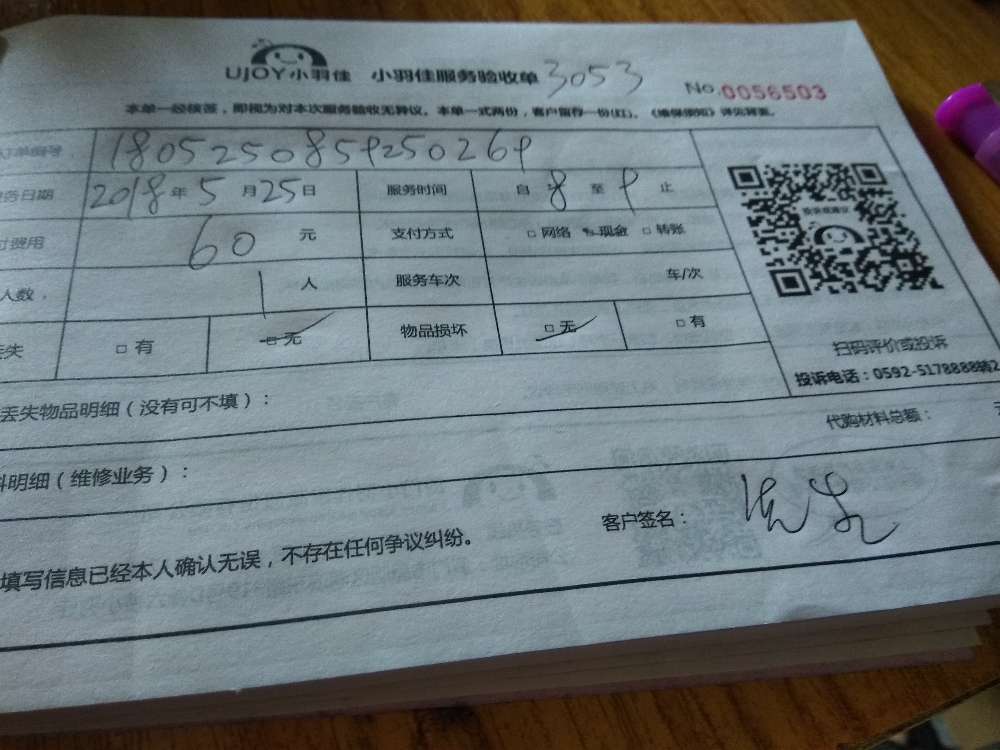 UJOY小羽佳 小羽佳服务验收单 3053
No.0056503
本单一经核签，即视为对本次服务验收无异议。本单一式两份，客户留存一份(红)。《维保须知》详见背面。
订单编号， 1805250859250269
务日期 2018年5月25日 服务时间 自 8 至 9 止
付费用 60 元 支付方式 □网络 现金 □转账
人数， 1 人 服务车次 车/次
丢失 □有 □无 物品损坏 □无 □有
扫码评价或投诉
投诉电话：0592-5178888转2
丢失物品明细（没有可不填）：
代购材料总额：
料明细（维修业务）：
客户签名：
填写信息已经本人确认无误，不存在任何争议纠纷。